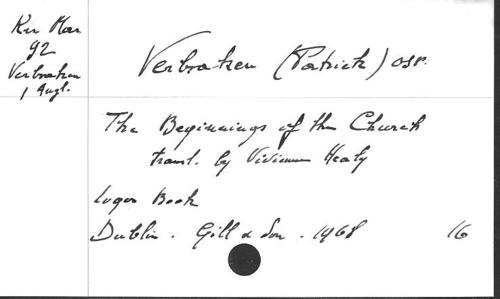 Ker Mar
92
Verbraken
1 Angl.
Verbraken (Patrick) OSB.
The Beginnings of the Church
transl. by Vivienne Healy
Logos Book
Dublin . Gill & Son . 1968 16